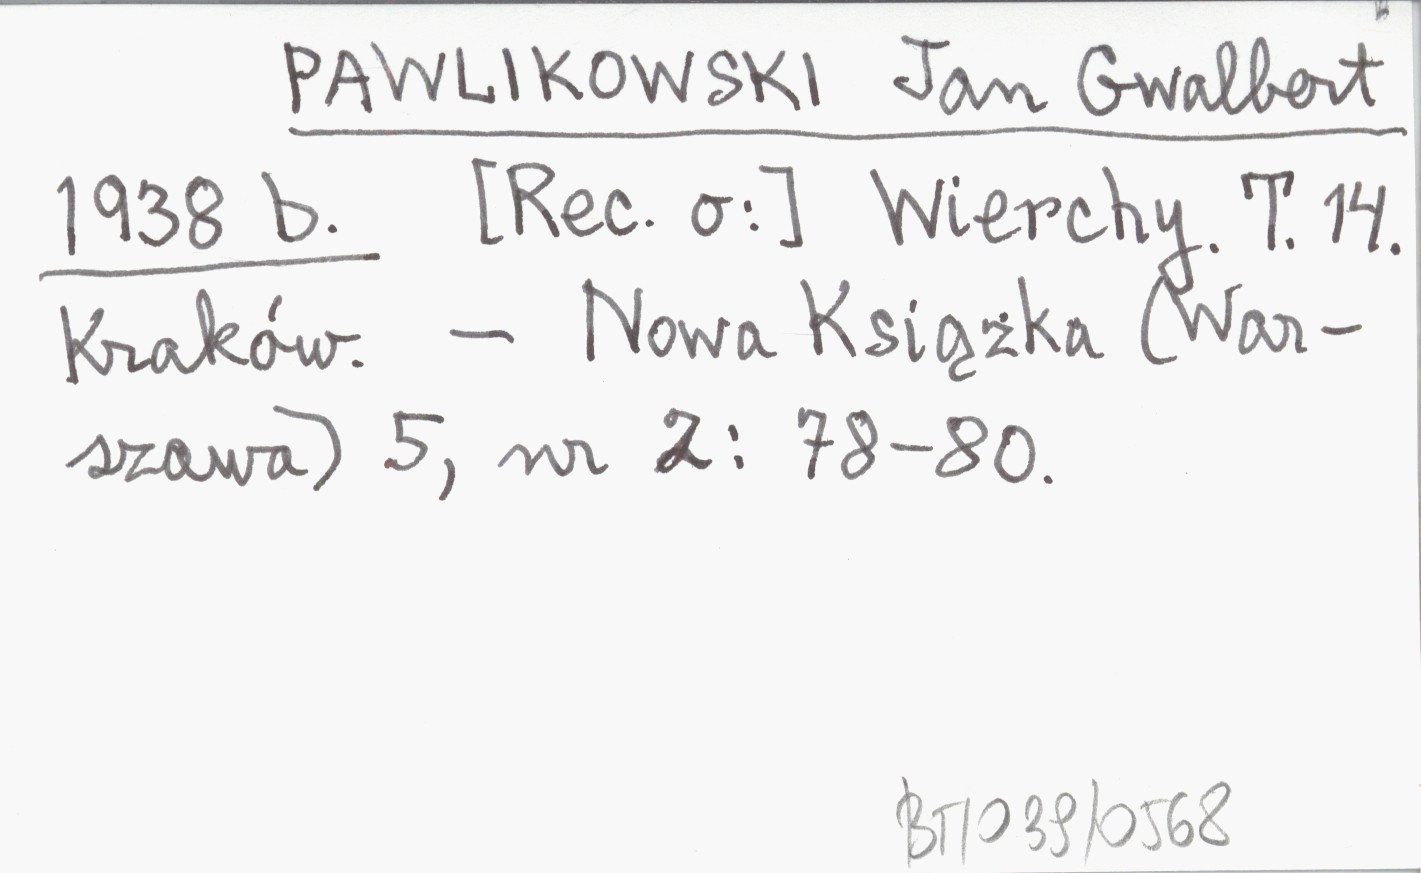 PAWLIKOWSKI Jan Gwalbert
1938 b. [Rec. o:] Wierchy. T. 14.
Kraków. — Nowa Książka (War-
szawa) 5, nr 2: 78-80.
BT/039/0568